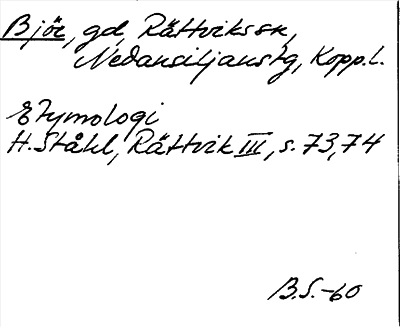 Björ, gd, Rättvikssn,
Nedansiljanstg, Kopp.l.
Etymologi
H. Ståhl, Rättvik III, s. 73, 74
B.S.-60